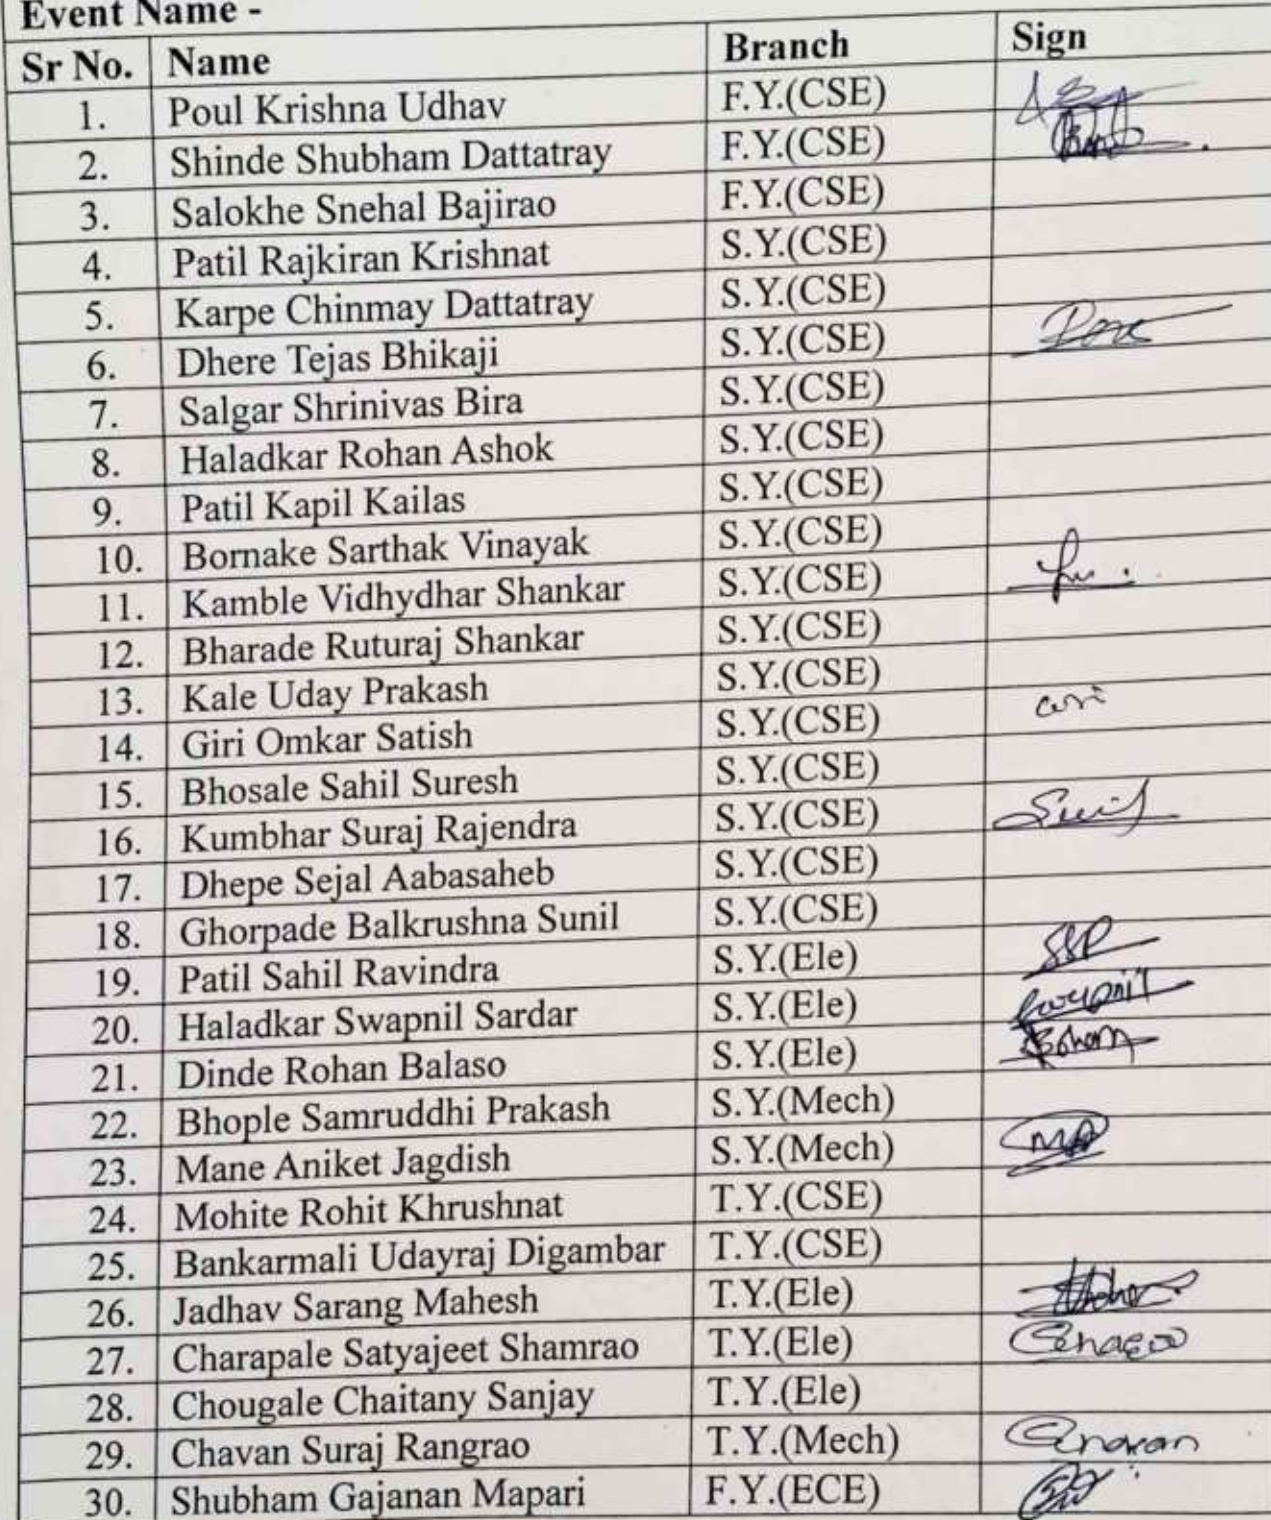 Event Name -
Sr No. Name Branch Sign
1. Poul Krishna Udhav F.Y.(CSE)
2. Shinde Shubham Dattatray F.Y.(CSE)
3. Salokhe Snehal Bajirao F.Y.(CSE)
4. Patil Rajkiran Krishnat S.Y.(CSE)
5. Karpe Chinmay Dattatray S.Y.(CSE)
6. Dhere Tejas Bhikaji S.Y.(CSE)
7. Salgar Shrinivas Bira S.Y.(CSE)
8. Haladkar Rohan Ashok S.Y.(CSE)
9. Patil Kapil Kailas S.Y.(CSE)
10. Bornake Sarthak Vinayak S.Y.(CSE)
11. Kamble Vidhydhar Shankar S.Y.(CSE)
12. Bharade Ruturaj Shankar S.Y.(CSE)
13. Kale Uday Prakash S.Y.(CSE)
14. Giri Omkar Satish S.Y.(CSE)
15. Bhosale Sahil Suresh S.Y.(CSE)
16. Kumbhar Suraj Rajendra S.Y.(CSE)
17. Dhepe Sejal Aabasaheb S.Y.(CSE)
18. Ghorpade Balkrushna Sunil S.Y.(CSE)
19. Patil Sahil Ravindra S.Y.(Ele) SSP
20. Haladkar Swapnil Sardar S.Y.(Ele)
21. Dinde Rohan Balaso S.Y.(Ele)
22. Bhople Samruddhi Prakash S.Y.(Mech)
23. Mane Aniket Jagdish S.Y.(Mech)
24. Mohite Rohit Khrushnat T.Y.(CSE)
25. Bankarmali Udayraj Digambar T.Y.(CSE)
26. Jadhav Sarang Mahesh T.Y.(Ele)
27. Charapale Satyajeet Shamrao T.Y.(Ele)
28. Chougale Chaitany Sanjay T.Y.(Ele)
29. Chavan Suraj Rangrao T.Y.(Mech)
30. Shubham Gajanan Mapari F.Y.(ECE)